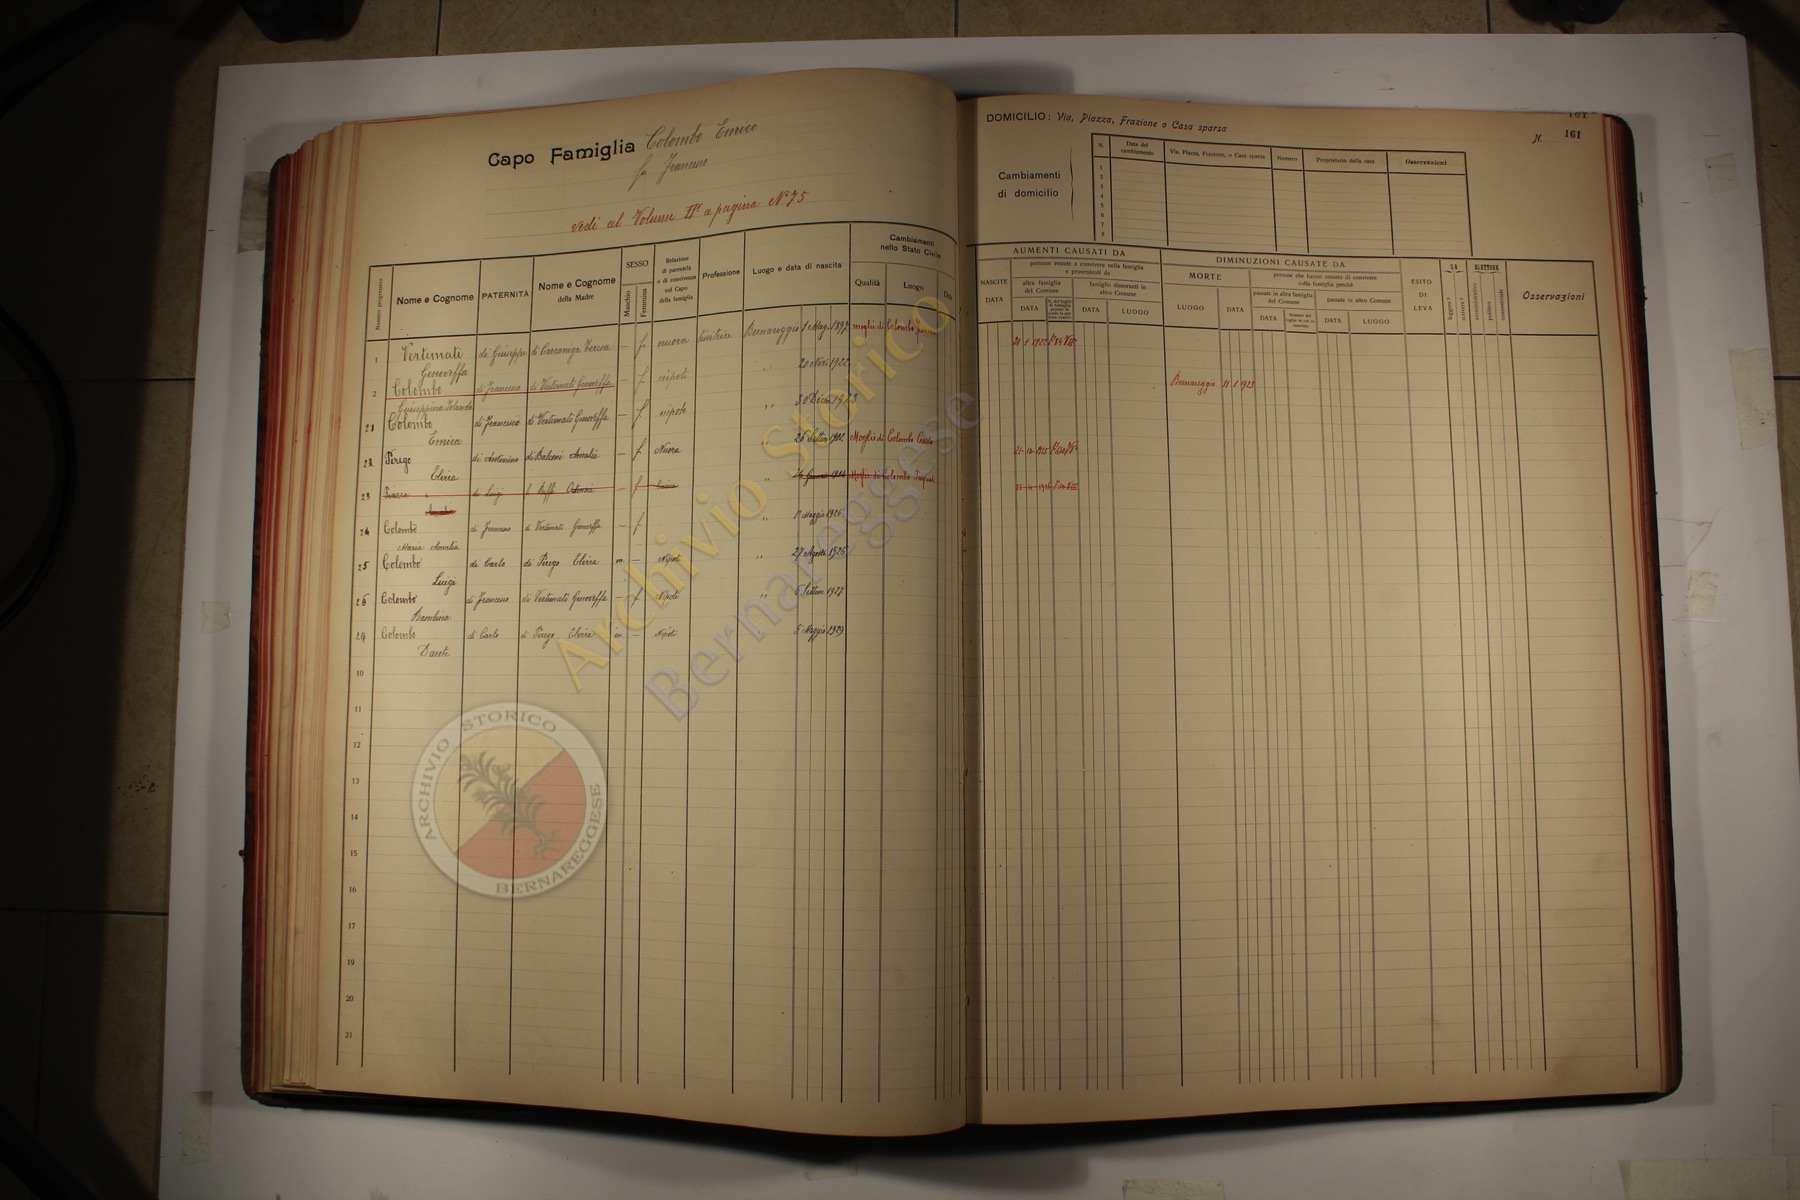 Capo Famiglia Colombo Enrico
fu Francesco
vedi al Volume II° a pagina N° 75
Numero progressivo
Nome e Cognome
PATERNITÀ
Nome e Cognome della Madre
SESSO
Maschio
Femmina
Relazione di parentela o di convivenza col Capo della famiglia
Professione
Luogo e data di nascita
Cambiamenti nello Stato Civile
Qualità
Luogo
Data
1 Vertemati di Giuseppe di Teresa — f. nuora Bernareggio 1 Mag. 1897 moglie di Colombo
Genoveffa
2 Colombo di Francesco di Vertemati Genoveffa — f nipote " 20 Nov. 1922
Giuseppina Iolanda
Colombo di Francesco di Vertemati Genoveffa — f nipote " 30 Dicem. 1923
Enrica
Perego di Antonino di Balconi Amalia — f Nuora " 26 Settem 1902 Moglie di Colombo Carlo
Elvira
di Luigi — f " Moglie di Colombo
24 Colombo di Francesco di Vertemati Genoveffa — f " Maggio 1926
Maria Amalia
25 Colombo di Carlo di Perego Elvira m. — Nipote " 27 Agosto 1926
Luigi
26 Colombo di Francesco di Vertemati Genoveffa — f Nipote " 6 Settem 1927
Bambina
Colombo di Carlo di Perego Elvira m. — Nipote " 5 Maggio 1929
Dante
10
11
12
13
14
15
16
17
18
19
20
21
DOMICILIO: Via, Piazza, Frazione o Casa sparsa
161
N. 161
Cambiamenti di domicilio
N.
Data del cambiamento
Via, Piazza, Frazione, o Casa sparsa
Numero
Proprietario della casa
Osservazioni
1
2
3
4
5
6
7
8
AUMENTI CAUSATI DA
NASCITE
DATA
persone venute a convivere nella famiglia e provenienti da
altra famiglia del Comune
DATA
famiglie dimoranti in altro Comune
DATA
LUOGO
DIMINUZIONI CAUSATE DA
MORTE
LUOGO
DATA
persone che hanno cessato di convivere colla famiglia perchè
passate in altra famiglia del Comune
DATA
passate in altro Comune
DATA
LUOGO
ESITO DI LEVA
SA
leggere?
scrivere?
ELETTORE
amministrativo
politico
commerciale
Osservazioni
Bernareggio 1 1923
Archivio Storico
Bernareggese
ARCHIVIO STORICO
BERNAREGGESE